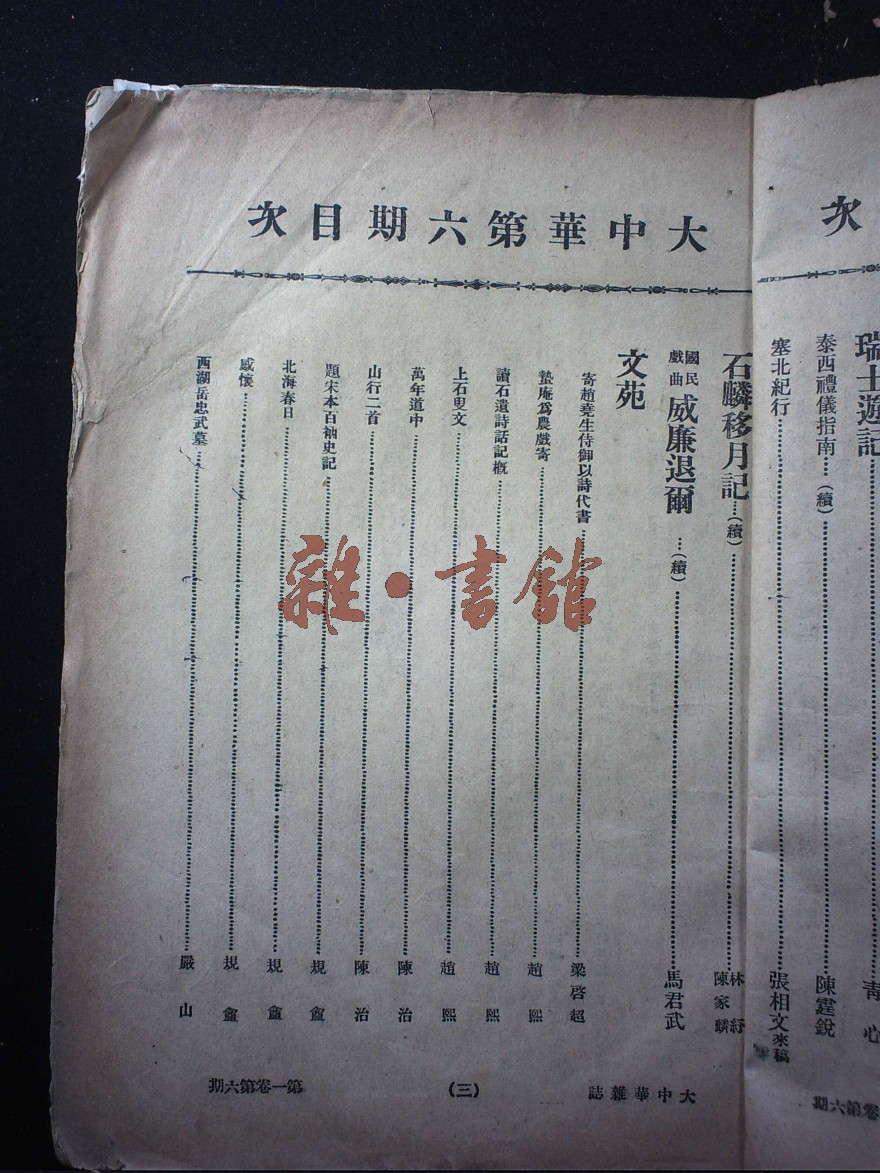 次
瑞士遊記
靑心
泰西禮儀指南……(續)
陳霆銳
塞北紀行
張相文來稿
卷第六期
大中華第六期目次
石麟移月記…(續)
林紓
陳家麟
國民戲曲 威廉退爾 …(續)
馬君武
文苑
寄趙堯生侍御以詩代書
梁啓超
蟄庵爲農戲寄
趙熙
讀石遺詩話記槪
趙熙
上石叟文
趙熙
萬年道中
陳治
山行二首
陳治
題宋本百衲史記
規盦
北海春日
規盦
感懷
規盦
西湖岳忠武墓
嚴山
大中華雜誌
(三)
第一卷第六期
雜·書館